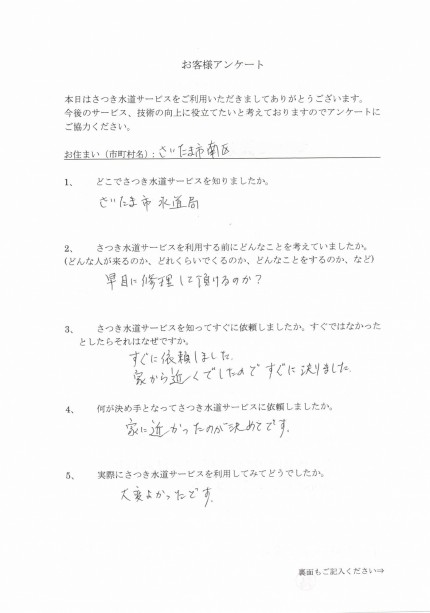 お客様アンケート
本日はさつき水道サービスをご利用いただきましてありがとうございます。
今後のサービス、技術の向上に役立てたいと考えておりますのでアンケートに
ご協力ください。
お住まい（市町村名）：さいたま市南区
1、 どこでさつき水道サービスを知りましたか。
さいたま市 水道局
2、 さつき水道サービスを利用する前にどんなことを考えていましたか。
(どんな人が来るのか、どれくらいでくるのか、どんなことをするのか、など)
早目に修理して頂けるのか？
3、 さつき水道サービスを知ってすぐに依頼しましたか。すぐではなかった
としたらそれはなぜですか。
すぐに依頼しました.
家から近くでしたのですぐに決りました.
4、 何が決め手となってさつき水道サービスに依頼しましたか。
家に近かったのが決めてです.
5、 実際にさつき水道サービスを利用してみてどうでしたか。
大変よかったです.
裏面もご記入ください⇒